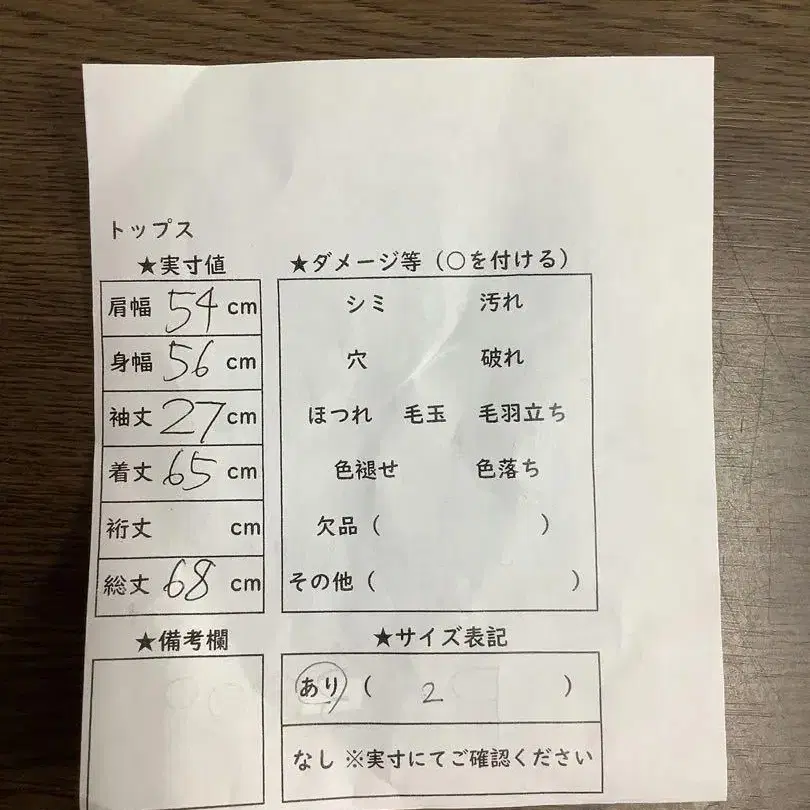 トップス
★実寸値
肩幅 54 cm
身幅 56 cm
袖丈 27 cm
着丈 65 cm
裄丈 cm
総丈 68 cm
★ダメージ等（○を付ける）
シミ 汚れ
穴 破れ
ほつれ 毛玉 毛羽立ち
色褪せ 色落ち
欠品（ ）
その他（ ）
★備考欄
★サイズ表記
あり（ 2 ）
なし ※実寸にてご確認ください